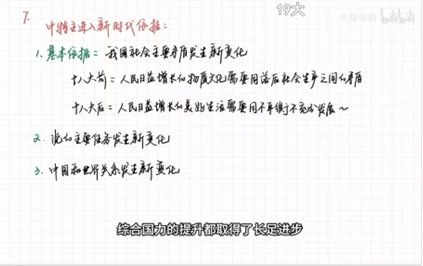 19大
bilibili
7. 中特主进入新时代依据：
1. 基本依据：我国社会主要矛盾发生新变化
十八大前：人民日益增长的物质文化需要同落后社会生产之间的矛盾
十八大后：人民日益增长的美好生活需要同不平衡不充分发展～
2. 党的主要任务发生新变化
3. 中国和世界关系发生新变化
综合国力的提升都取得了长足进步